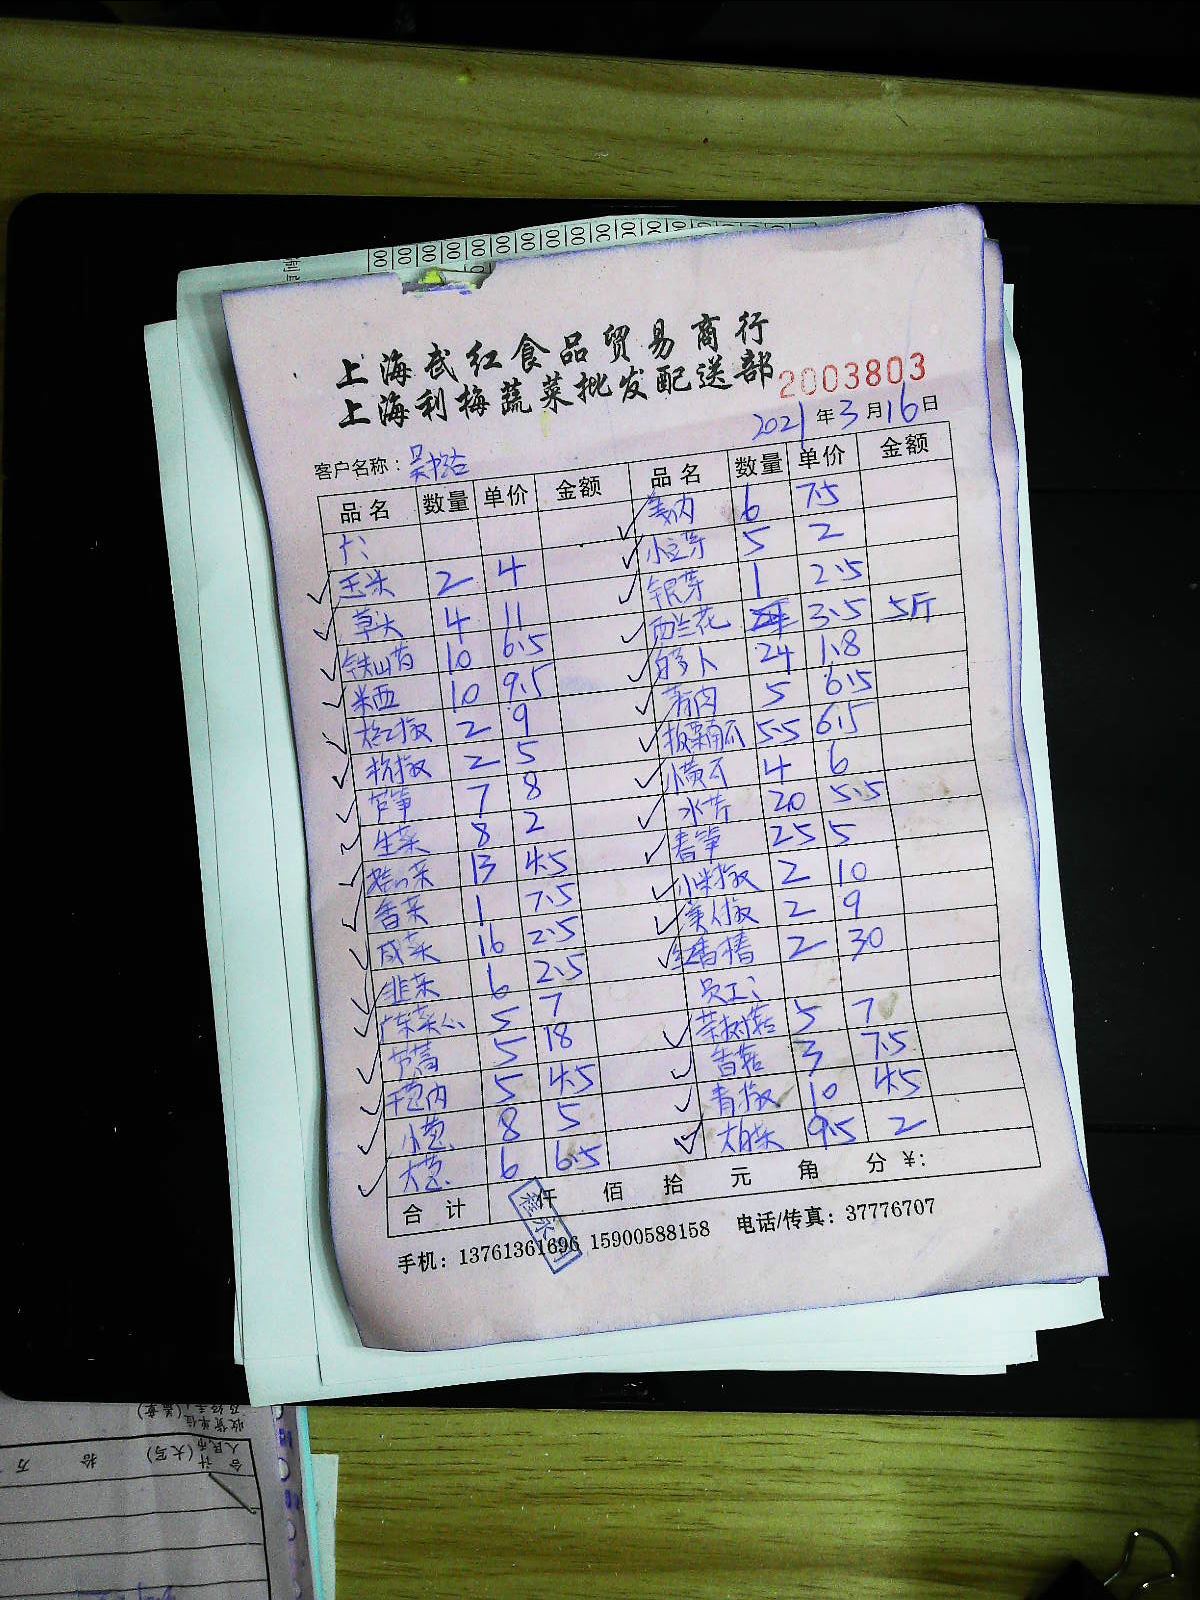 上海武红食品贸易商行
上海利梅蔬菜批发配送部
2003803
2021年3月16日
客户名称:
品名 数量 单价 金额 品名 数量 单价 金额
姜肉 6 7.5
玉米 2 4 小豆芽 5 2
草头 4 11 银芽 1 2.5
铁山药 10 6.5 西兰花 3.5 5斤
米西 10 9.5 白萝卜 24 1.8
大红椒 2 9 5 6.5
杭椒 2 5 板栗南瓜 5.5 6.5
芦笋 7 8 小黄瓜 4 6
生菜 8 2 水芹 20 5.5
13 4.5 春笋 25 5
香菜 1 7.5 小米椒 2 10
咸菜 16 2.5 美人椒 2 9
韭菜 6 2.5 红香椿 2 30
广东菜心 5 7 员工:
芦蒿 5 18 茶树菇 5 7
5 4.5 香菇 3 7.5
小葱 8 5 青椒 10 4.5
大葱 6 6.5 大白菜 9.5 2
合计 仟 佰 拾 元 角 分 ¥:
手机:13761361696 15900588158 电话/传真:37776707
收货单位
及经手人(盖章)
合计
人民币(大写) 拾 万